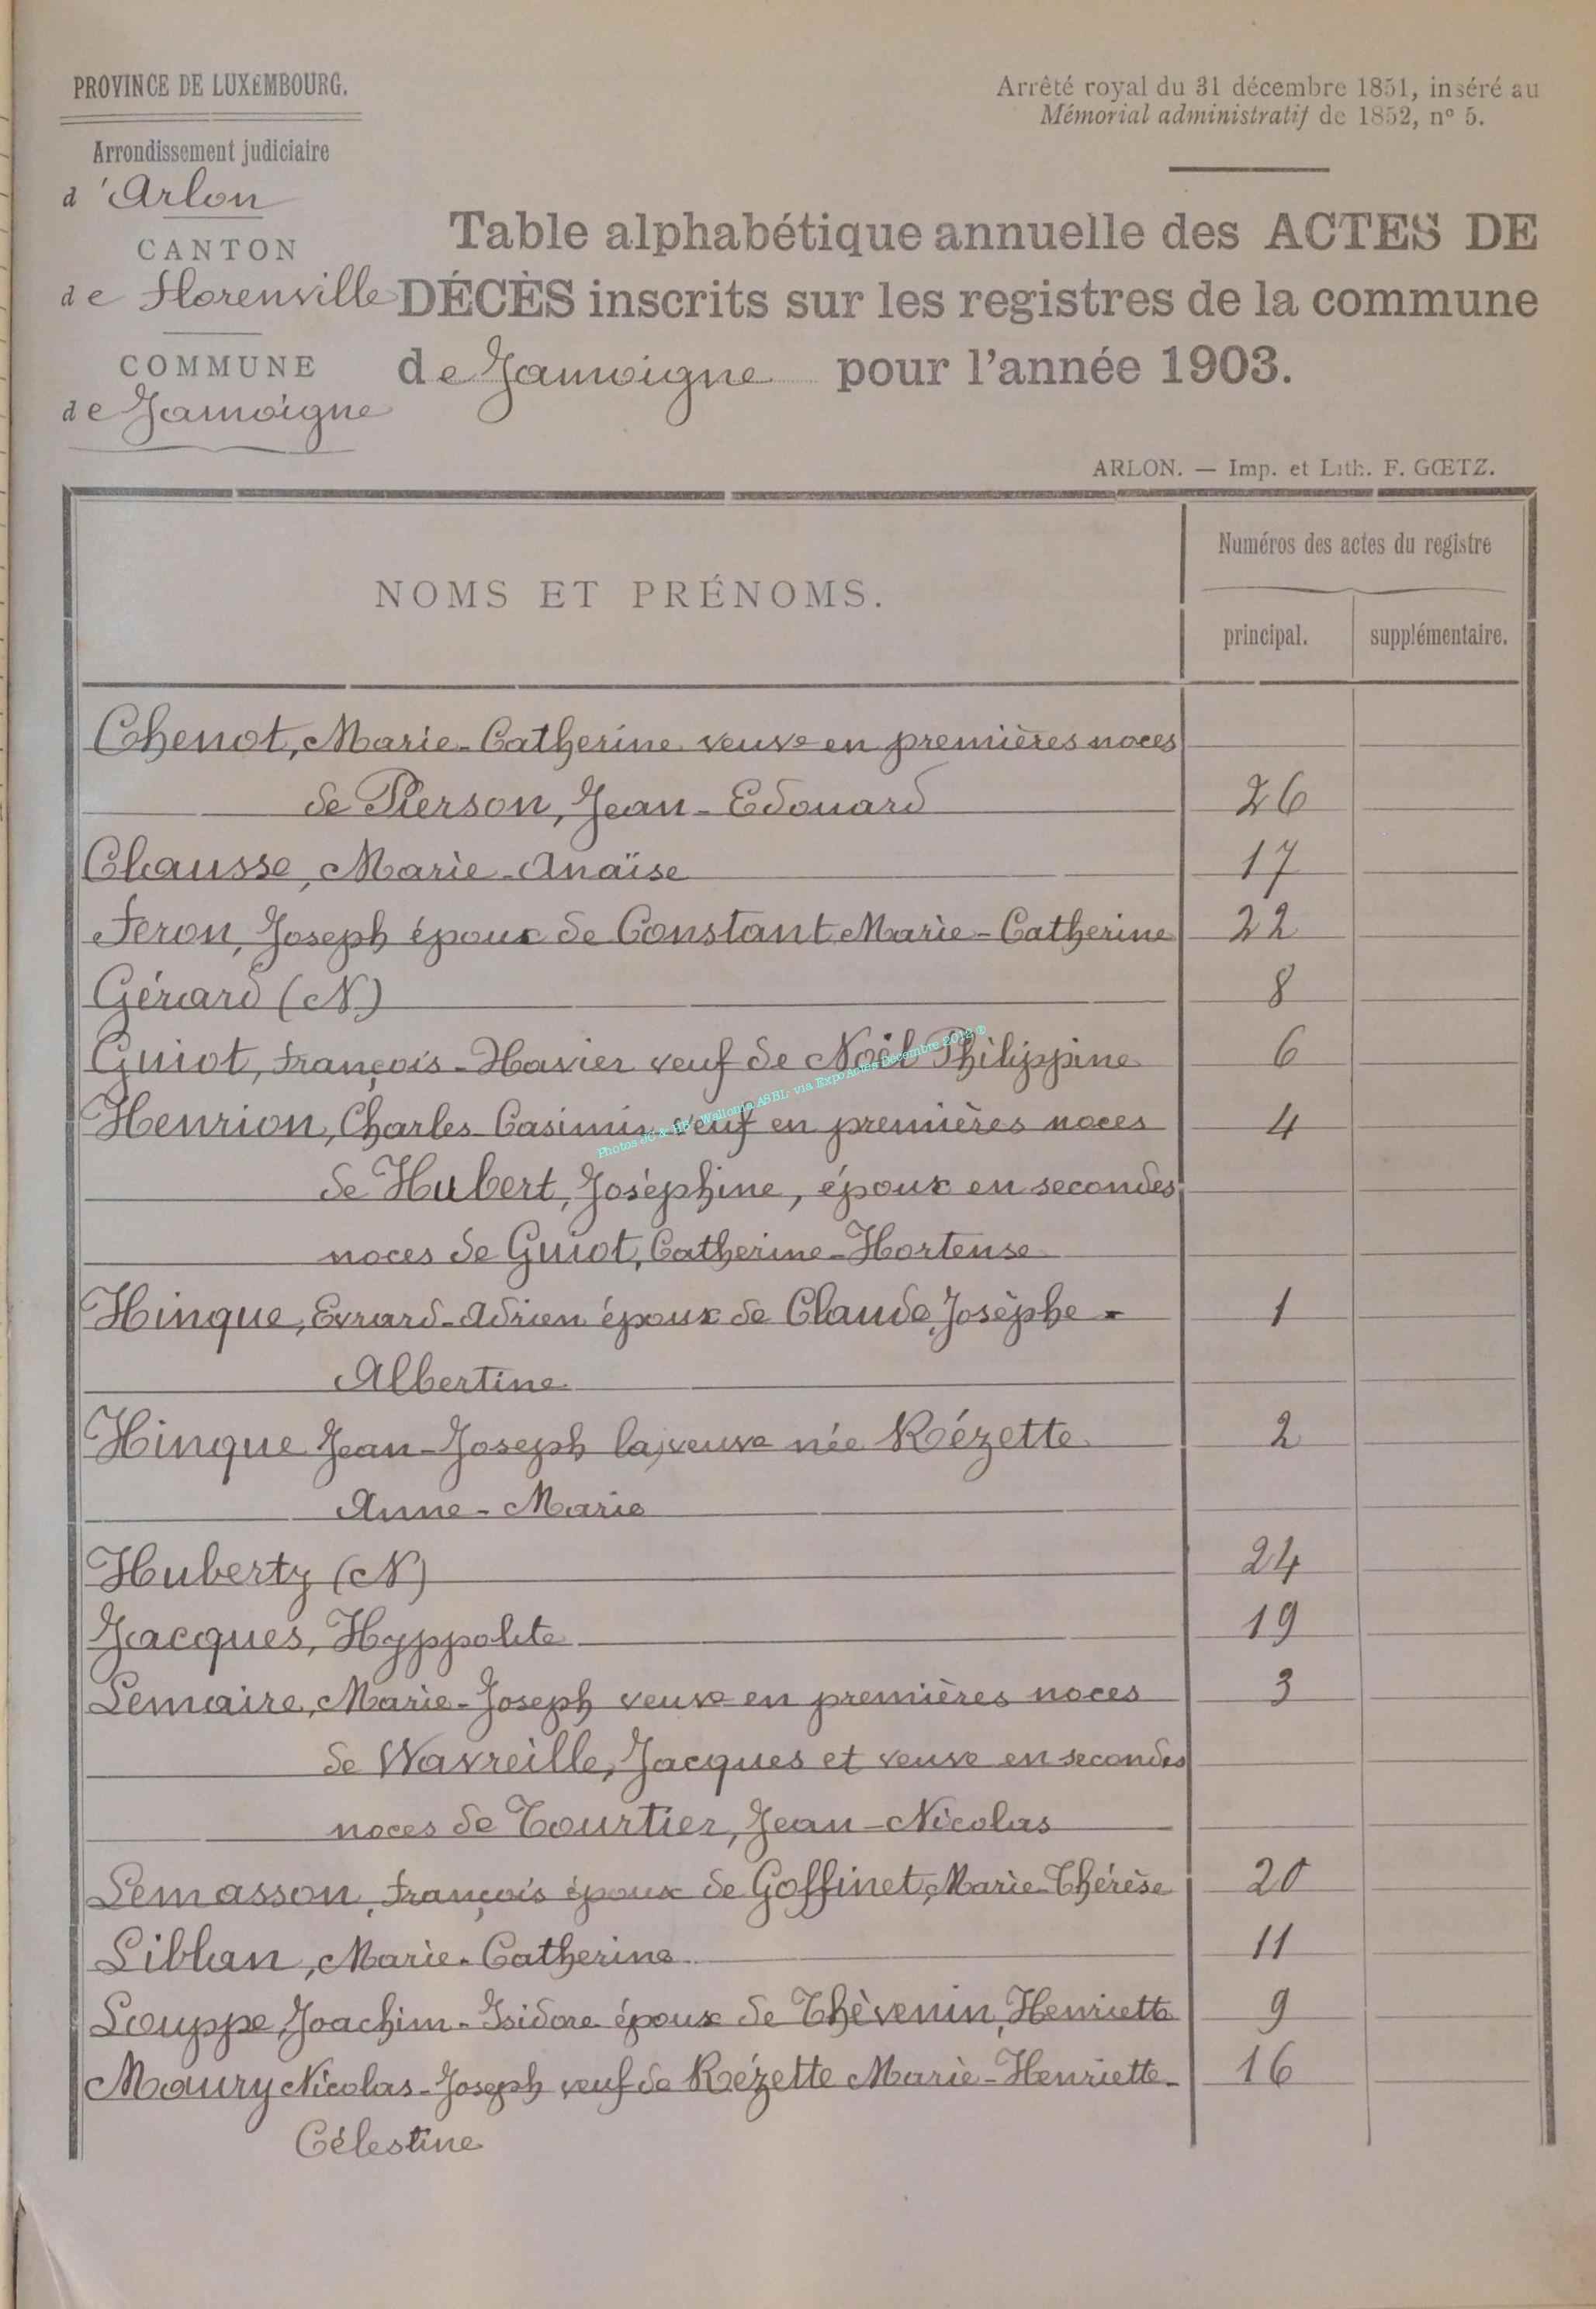 PROVINCE DE LUXEMBOURG.
Arrêté royal du 31 décembre 1851, inséré au
Mémorial administratif de 1852, nº 5.
Arrondissement judiciaire
d'Arlon
CANTON
de Florenville
COMMUNE
de Jamoigne
Table alphabétique annuelle des ACTES DE
DÉCÈS inscrits sur les registres de la commune
de Jamoigne pour l'année 1903.
ARLON. — Imp. et Lith. F. GŒTZ.
NOMS ET PRÉNOMS.
Numéros des actes du registre
principal. supplémentaire.
Chenot, Marie-Catherine veuve en premières noces
de Pierson, Jean-Edouard 26
Clausse, Marie-Anaïse 17
Feron, Joseph époux de Constant, Marie-Catherine 22
Gérard (N) 8
Guiot, François-Xavier veuf de Noël Philippine 6
Henrion, Charles Casimir veuf en premières noces 4
de Hubert, Joséphine, époux en secondes
noces de Guiot, Catherine-Hortense
Hinque, Evrard-Adrien époux de Claude, Josèphe- 1
Albertine
Hinque Jean-Joseph la veuve née Rézette 2
Anne-Marie
Huberty (N) 24
Jacques, Hyppolite 19
Lemaire, Marie-Joseph veuve en premières noces 3
de Wavreille, Jacques et veuve en secondes
noces de Tourtier, Jean-Nicolas
Lemasson, François époux de Goffinet, Marie-Thérèse 20
Liblan, Marie-Catherine 11
Louppe, Joachim-Isidore époux de Thèvenin, Henriette 9
Maury Nicolas-Joseph veuf de Rézette Marie-Henriette- 16
Célestine
Photos JC & HB, Wallonia ASBL, via ExpoActes Décembre 2012 ®